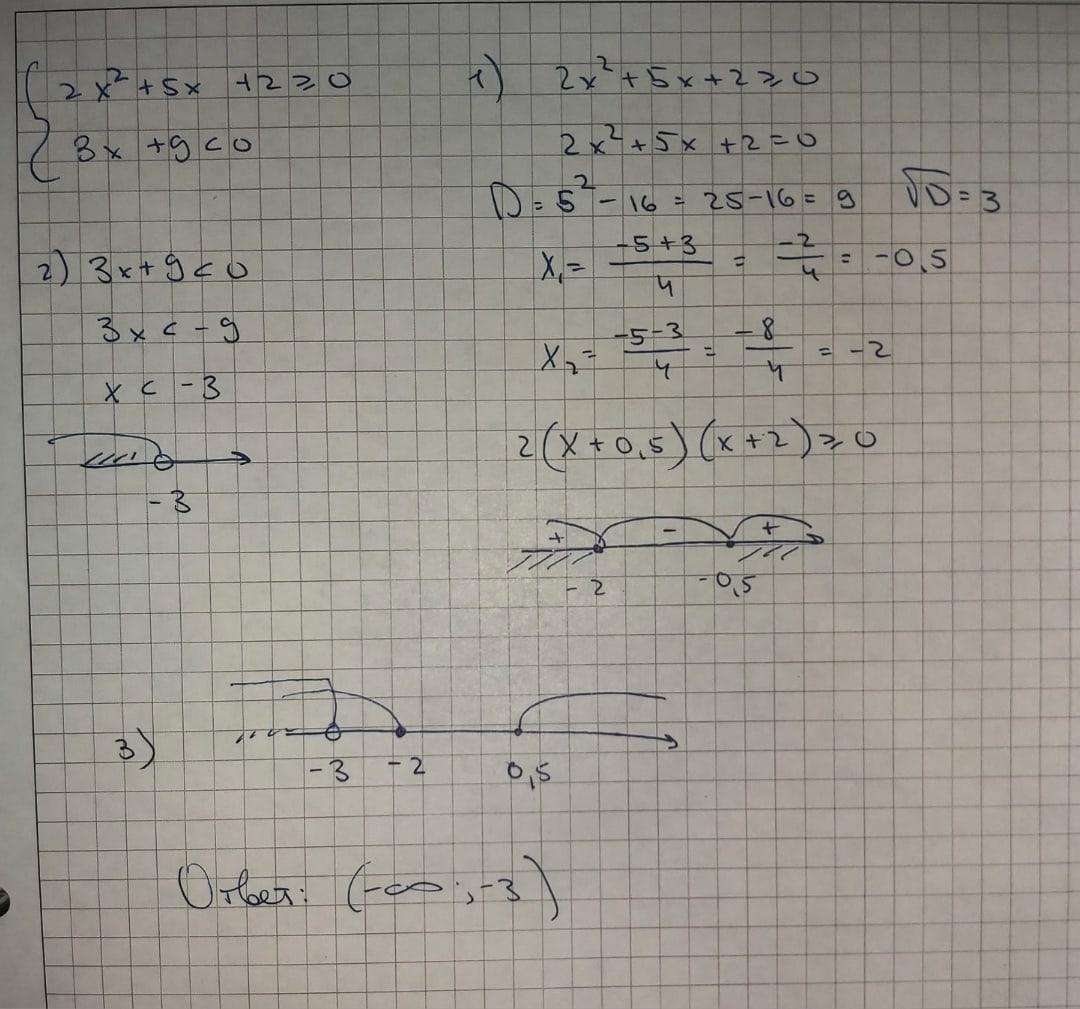 2x² + 5x + 2 ≥ 0
3x + 9 < 0
1) 2x² + 5x + 2 ≥ 0
2x² + 5x + 2 = 0
D = 5² - 16 = 25 - 16 = 9 √D = 3
x₁ = (-5 + 3)/4 = -2/4 = -0,5
x₂ = (-5 - 3)/4 = -8/4 = -2
2(x + 0,5)(x + 2) ≥ 0
+ - +
-2 -0,5
2) 3x + 9 < 0
3x < -9
x < -3
-3
3)
-3 -2 0,5
Ответ: (-∞; -3)